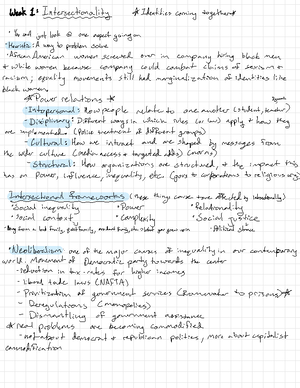 Week 1: Intersectionality * Identities coming together*
• Do not just look @ one aspect going on
• Heuristic: A way to problem solve
• African American women screwed over in company hiring black men
+ white women because company could combat claims of sexism +
racism; equality movements still had marginalization of identities like
black women.
* Power relations *
- Interpersonal: How people relate to one another (student, teacher)
- Disciplinary: Different ways in which rules (or law) apply + how they
are implemented (Police treatment of different groups)
- Cultural: How we interact and are shaped by messages from
the wider culture
- Structural: How organizations are structured, + the impact this
has on Power, influence, inequality, etc. (goes to corporations to religious org)
Intersectional Frameworks (these things cause/are affected by intersectionality)
• Social inequality • Power • Relationality
• Social context • Complexity • Social justice
• Neoliberalism: one of the major causes of inequality in our contemporary
world. Movement of Democratic party towards the center
- reduction in tax rates for higher incomes
- Liberal trade laws (NAFTA)
- Privitization of government services (Prisons)*
- Deregulations (monopolies)
- Dismantling of government assistance
* need problems are becoming commodified.
- not about democrat or republican politics, more about capitalist
commodification